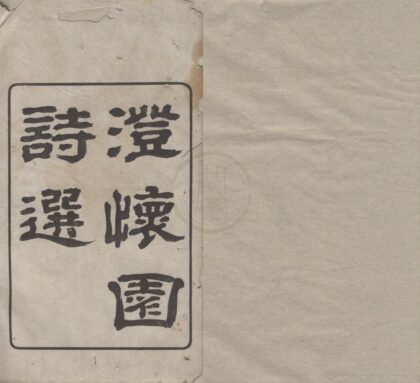 澄懷園
詩選